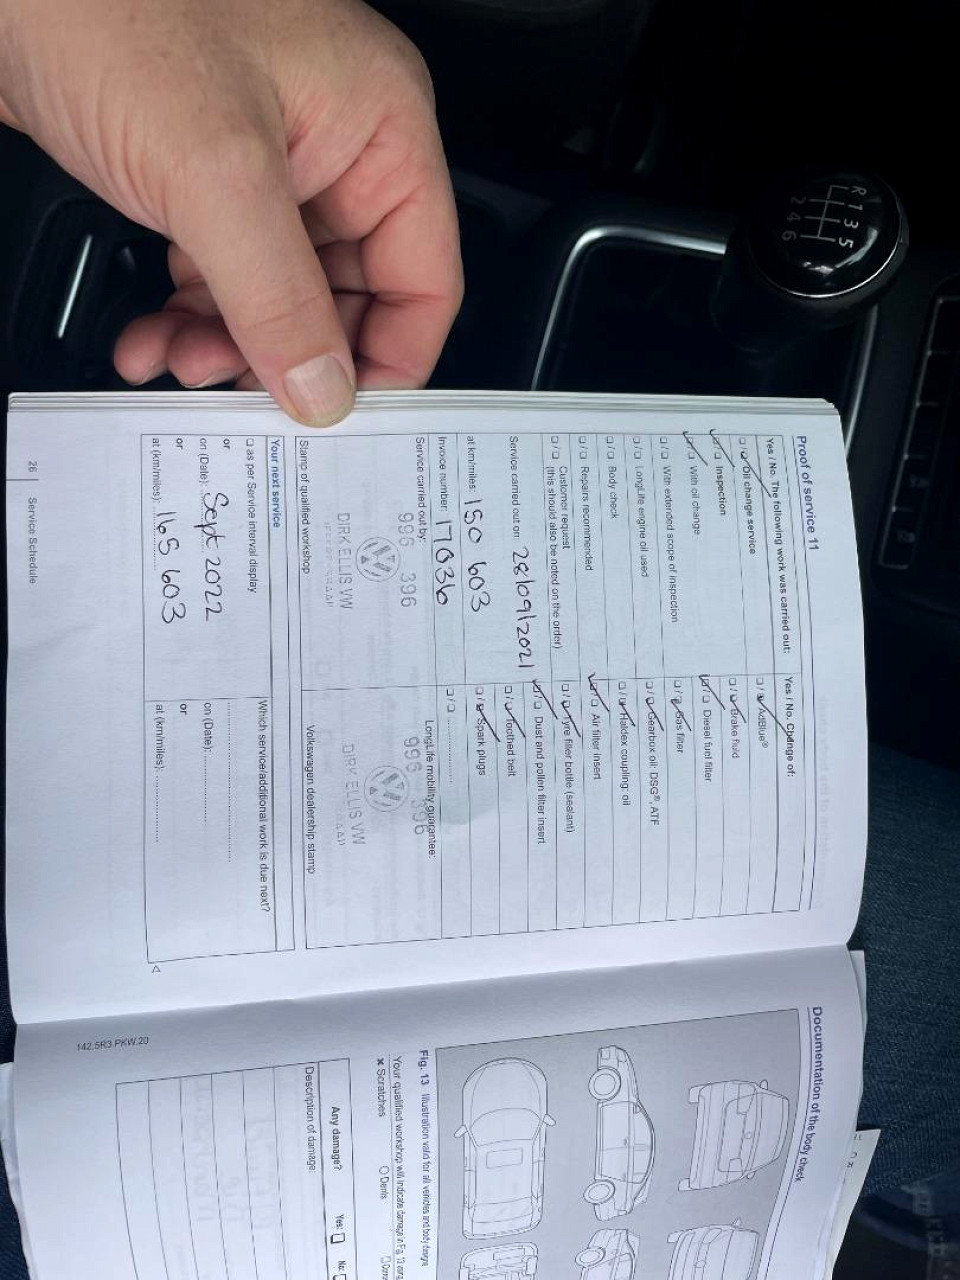 Proof of service 11
Yes / No. The following work was carried out:
☐/☐ Oil change service
☐/☐ Inspection
☐/☐ With oil change
☐/☐ With extended scope of inspection
☐/☐ LongLife engine oil used
☐/☐ Body check
☐/☐ Repairs recommended
☐/☐ Customer request
(this should also be noted on the order)
Service carried out on: 28/09/2021
at km/miles: 150 603
Invoice number: 17036
Service carried out by:
996 396
DIRK ELLIS VW
Stamp of qualified workshop
Yes / No. Change of:
☐/☐ AdBlue®
☐/☐ Brake fluid
☐/☐ Diesel fuel filter
☐/☐ Gas filter
☐/☐ Gearbox oil: DSG®, ATF
☐/☐ Haldex coupling: oil
☐/☐ Air filter insert
☐/☐ Tyre filler bottle (sealant)
☐/☐ Dust and pollen filter insert
☐/☐ Toothed belt
☐/☐ Spark plugs
☐/☐ ..................
LongLife mobility guarantee:
996 396
DIRK ELLIS VW
Volkswagen dealership stamp
Your next service
☐ as per Service interval display
or
on (Date): Sept 2022
or
at (km/miles): 165 603
Which service/additional work is due next?
on (Date):
or
at (km/miles):
26 | Service Schedule
142.5R3.PKW.20
Documentation of the body check
Fig. 13 Illustration valid for all vehicles and body designs
Your qualified workshop will indicate damage in Fig. 13 using
× Scratches
O Dents
Any damage?
Yes: ☐ No: ☐
Description of damage:
R 1 3 5
2 4 6